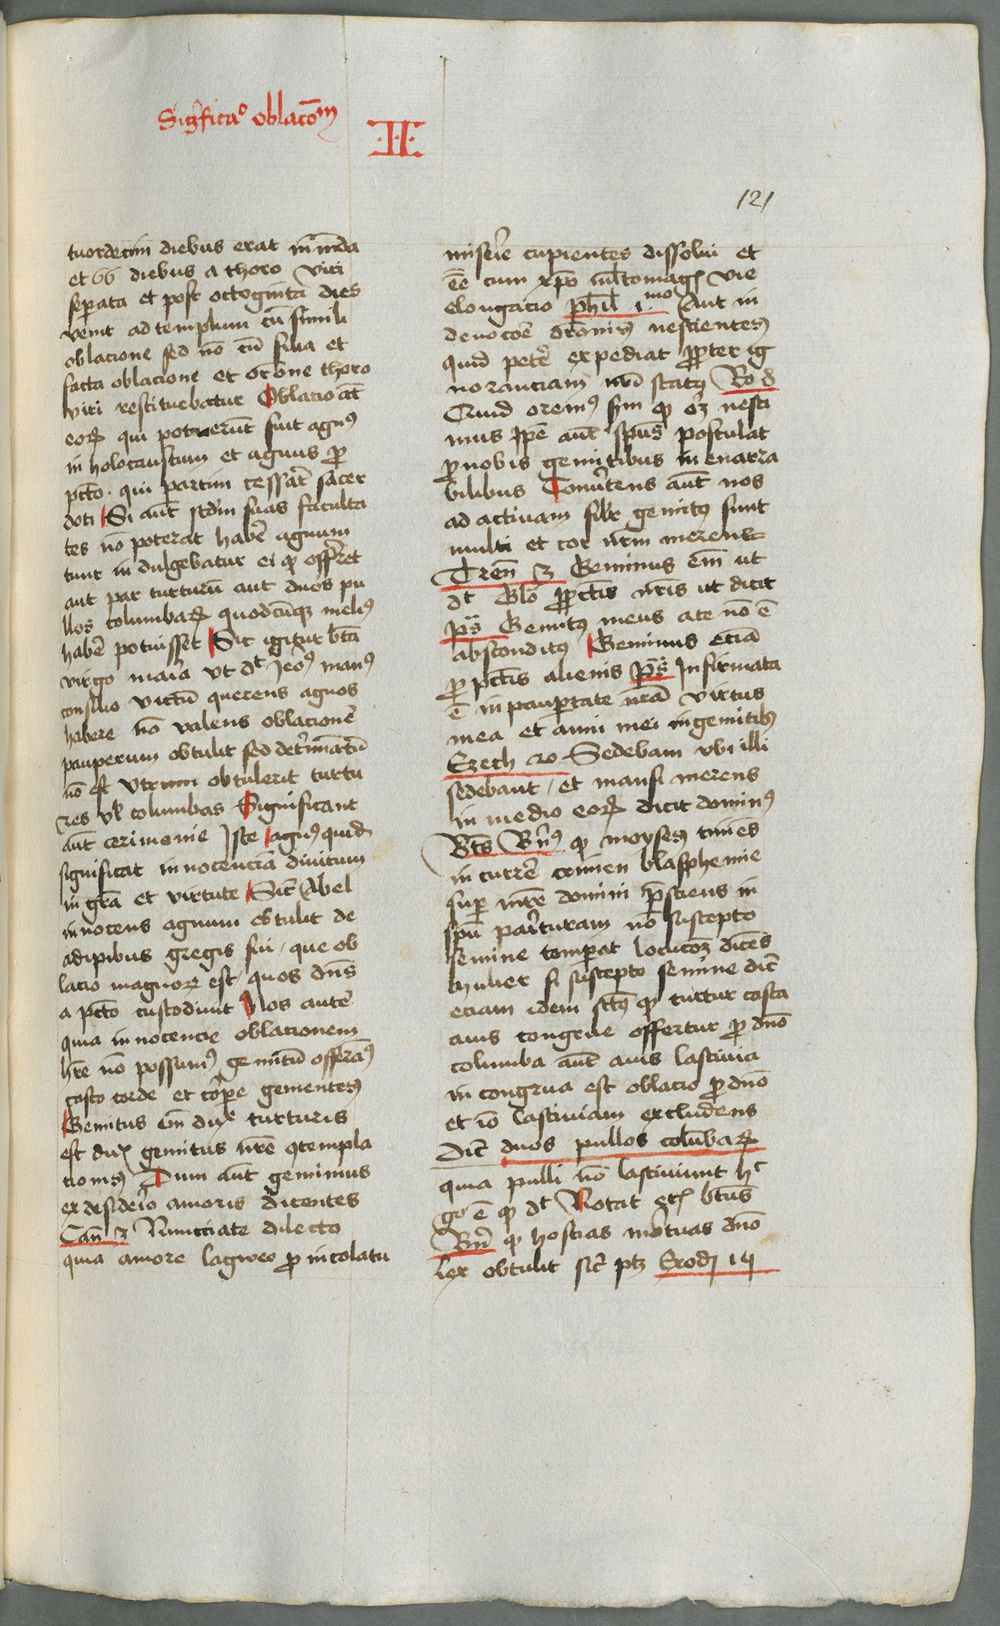 Significa° oblacōm
II
121
tuordecim diebus erat in mūda
et 66 diebus a thoro viri
sep̄ata et post octoginta dies
venit ad templum cū simili
oblacione sed nō cū filia et
facta oblacione et or̄one thoro
viri restituebatur Oblacio at̄
eoꝝ qui potuerūt fuit agn9
in holocaustum et agnus ꝑ
pctō · qui partim cessāt sacer
doti Si aut̄ scd̄m suas faculta
tes nō poterat hab̄e agnum
tunc in dulgebatur ei qꝫ offerret
aut par turturū aut duos pu
llos columbaꝝ quodcūqꝫ meli9
hab̄e potuisset Sic igitur bt̄a
virgo maria vt dt
consilio victū querens agnos
habere nō valens oblacionē
pauperum obtulit sed det̄minatū
nō est vtrum obtulerit turtu
res vl̄ columbas Significant
aut̄ cerimonie Iste agn9 quidē
significat innocenciā divitum
in gr̄a et virtute Sic Abel
innocens agnum obtulit de
adipibus gregis sui / que ob
lacio magnoꝝ est / quos dn̄s
a pctō custodiunt Nos autē
quia innocencie oblacionem
hr̄e nō possum9 gemitū offeram9
casto corde et corp̄e gementes
Gemitus ī turturis
est du gemitus nr̄e ꝯtempla
tionis Dum aut̄ gemimus
ex desiderio amoris dicentes
Can̄ 3 Nunciate dilecto
quia amore langweo ꝑ incolatu
miserie cupientes dissolvi et
ēē cum xp̄o vie
elongacio Phil̄ 1mo Aut in
devocōe nescientes
quid petē expediat ꝓpter ig
noranciam nr̄i stat9 Ro 8
Quid orem9 sicut oꝫ nesci
mus ip̄e aut̄ spūs postulat
ꝓ nobis gemitibus inenarra
bilibus Convertens aut̄ nos
ad activam silr̄ gemit9 sunt
multi et cor nr̄m merens
Tren̄ 3 Gemimus em̄ ut
dt ꝓ pctīs nr̄is ut dicit
ps̄ Gemit9 meus a te nō ē
abscondit9 Gemimus eciā
ꝓ pctīs alienis ps̄ Infirmata
ē in paup̄tate nr̄a virtus
mea et anni mei in gemitib9
Ezech 20 Sedebam vbi illi
sedebant / et mansi merens
in medio eoꝝ dicit domin9
Bt̄s Bn̄9 qꝫ moyses timēs
in currē crimen blasphemie
sup̄ mr̄e domini p̄sciens in
spū parituram nō suscepto
semine temperat locucōꝫ dicēs
mulier si suscepto semine dic̄
eciam idem qꝫ turtur casta
avis congrue offertur ꝓ dn̄o
columba aut̄ avis lasciva
in congrua est oblacio ꝓ dn̄o
et iō lasciviam excludens
dic̄ duos pullos colūbaꝝ
quia pulli nō lasciviunt
go ē qꝫ dt Notat bt̄us
Bn̄ qꝫ hostias mortuas dn̄o
lex obtulit sic̄ ptꝫ Exodi